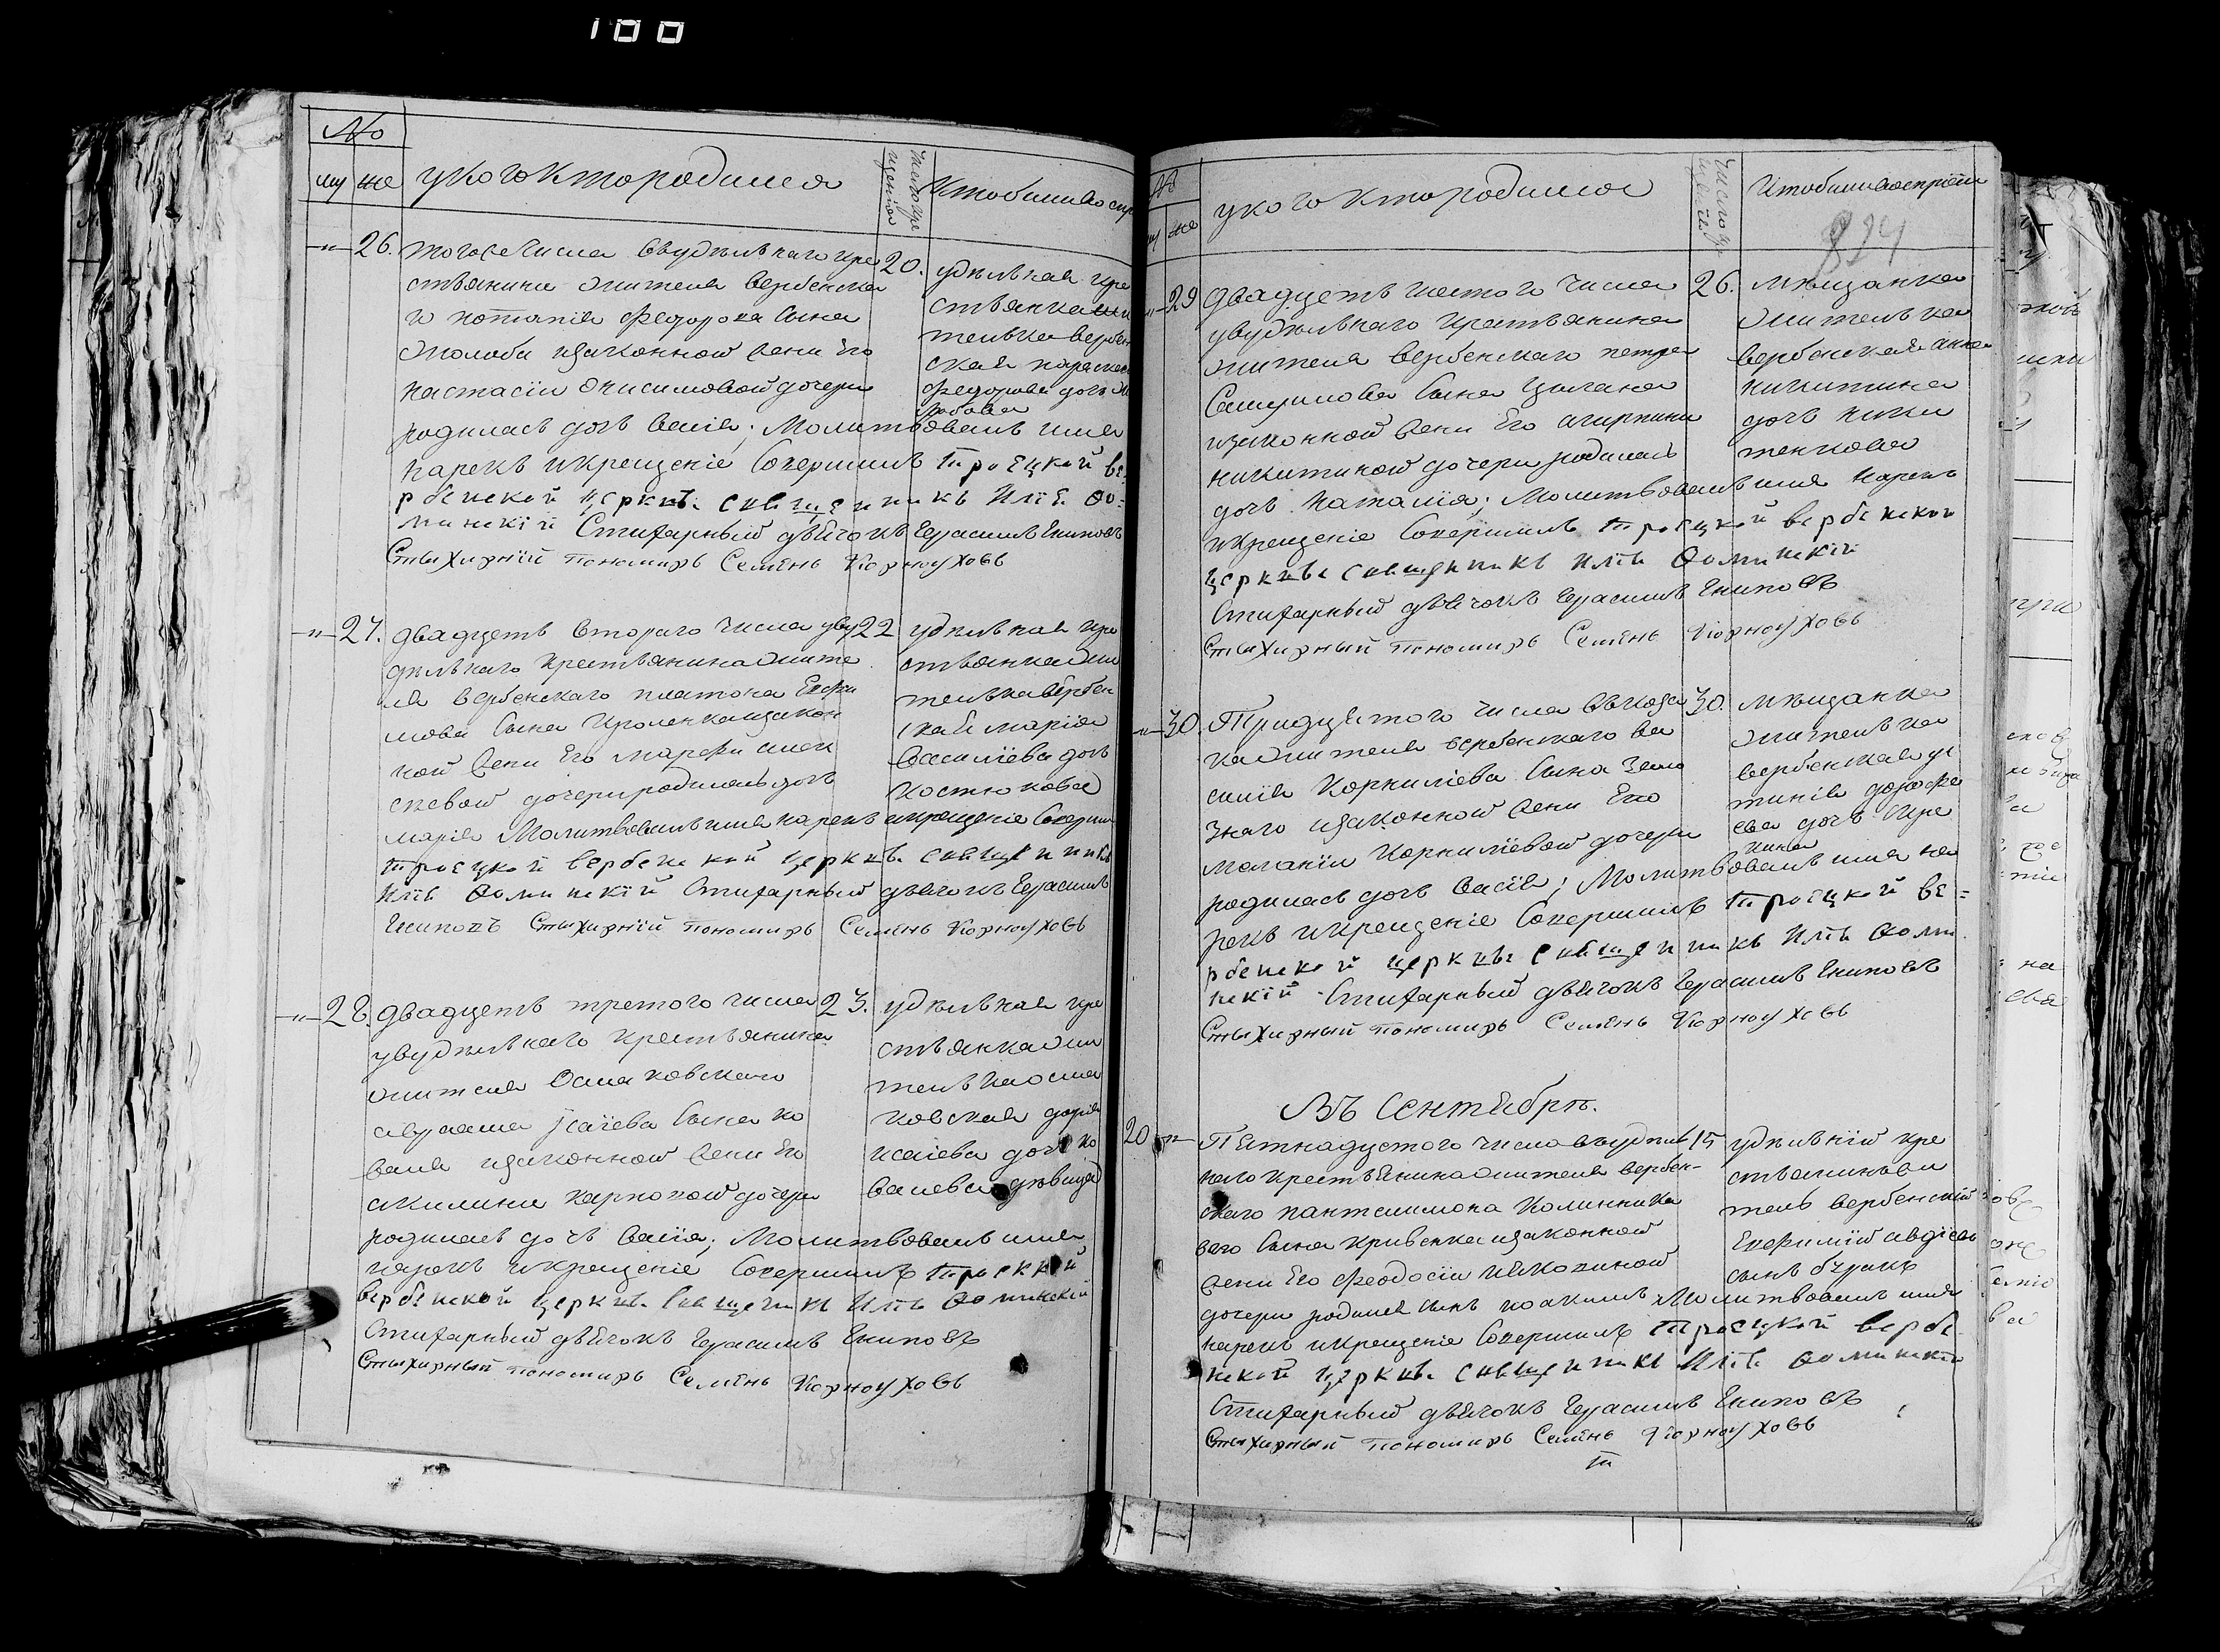 100
No
му же
у кого кто родился
Число кре
щенія
Кто были воспр
"26. тогоже числа въ удѣльнаго кре
стьянина жителя вербенска
го потапія федорова сына
жолоба изаконной жены Его
настасіи онисимовой дочери
родилась дочь васса; Молитвовалъ имя
нарекъ икрещеніе Совершилъ троецкой ве=
рбенской церквѣ священникъ Илія Ѳо=
минскій Стихарный дьячокъ Герасимъ Есиповъ
Стыхирній пономаръ Семѣнъ Корноуховъ
20. удѣльная кре
стьянка жи
телька вербен
ская параскев
федорова дочь жо
лобова
"27. двадцеть втораго числа уву
дѣльнаго крестьянина жите
ля вербенскаго платона Ефи
мова сына Кроленка изакон
ной жены Его марфы алек
сѣевой дочери родилась дочь
марія Молитвовалъ имя нарекъ икрещеніе Соверши
троецкой вербенской церквѣ священникъ
Илія Ѳоминскій Стихарный дьячокъ Герасимъ
Есиповъ Стыхирній пономаръ Семѣнъ Корноуховъ
22 удѣльная кре
стьянка жи
телька вербен
ская марія
василіева дочь
костюкова
"28. двадцеть третого числа
увудѣльнаго крестьянина
жителя Осмаковскаго
авраама Ісаіева сына ко
валя изаконной жены Его
акилины карповой дочери
родилась дочь васса; Молитвовалъ имя
нарекъ икрещеніе Совершилъ троецкой
вербенской церквѣ священникъ Илія Ѳоминскій
Стихарный дьячокъ Герасимъ Есиповъ
Стыхирный пономаръ Семѣнъ Корноуховъ
23. удѣльная кре
стьянка жи
телька осма
ковская дарія
исаіева дочь ко
валева дѣвица
у кого кто родился
Число кр
щенія
Кто были воспріем
824
"29 двадцеть шестого числа
увудѣльнаго крестьянина
жителя вербенскаго петра
Самуилова сына Цыгана
изаконной жены Его агирпины
никитиной дочери родилась
дочь наталія; Молитвовалъ имя нарекъ
икрещеніе Совершилъ троецкой вербенской
церквѣ священникъ Илія Ѳоминскій
Стихарный дьячокъ Герасимъ Есиповъ
Стыхирный пономаръ Семѣнъ Корноуховъ
26. мѣщанка
жителька
вербенская анна
никитина
дочь ники
тенкова
"30. Тридцетого числа въ коза
ка жителя вербенскаго ва
силія Корниліева сына
изаконной жены Его
маланіи Корниліевой дочери
родилась дочь васса; Молитвовалъ имя на
рекъ икрещеніе Совершилъ троецкой ве=
рбенской церквѣ священникъ Илія Ѳоми
нскій Стихарный дьячокъ Герасимъ Есиповъ
Стыхирный пономаръ Семѣнъ Корноуховъ
30. мѣщанка
жителька
вербенская ус
тинія дорофе
ева дочь
Въ Сентябрѣ.
20 " Пятнадцетого числа въ удѣль
наго крестьянина жителя вербен-
скаго пантелимона Калинника
ваго сына кривенка изаконной
жены Его феодосіи Іяковиной
дочери родился сынъ иоакимъ Молитвовалъ имя
нарекъ икрещеніе Совершилъ троецкой вербе
нской церквѣ священникъ Илія Ѳоминскій
Стихарный дьячокъ Герасимъ Есиповъ
Стыхирный пономаръ Семѣнъ Корноуховъ
15 удѣльній кре
стьянинъ жи
тель вербенскій
Ефимій авдіевъ
сынъ буракъ